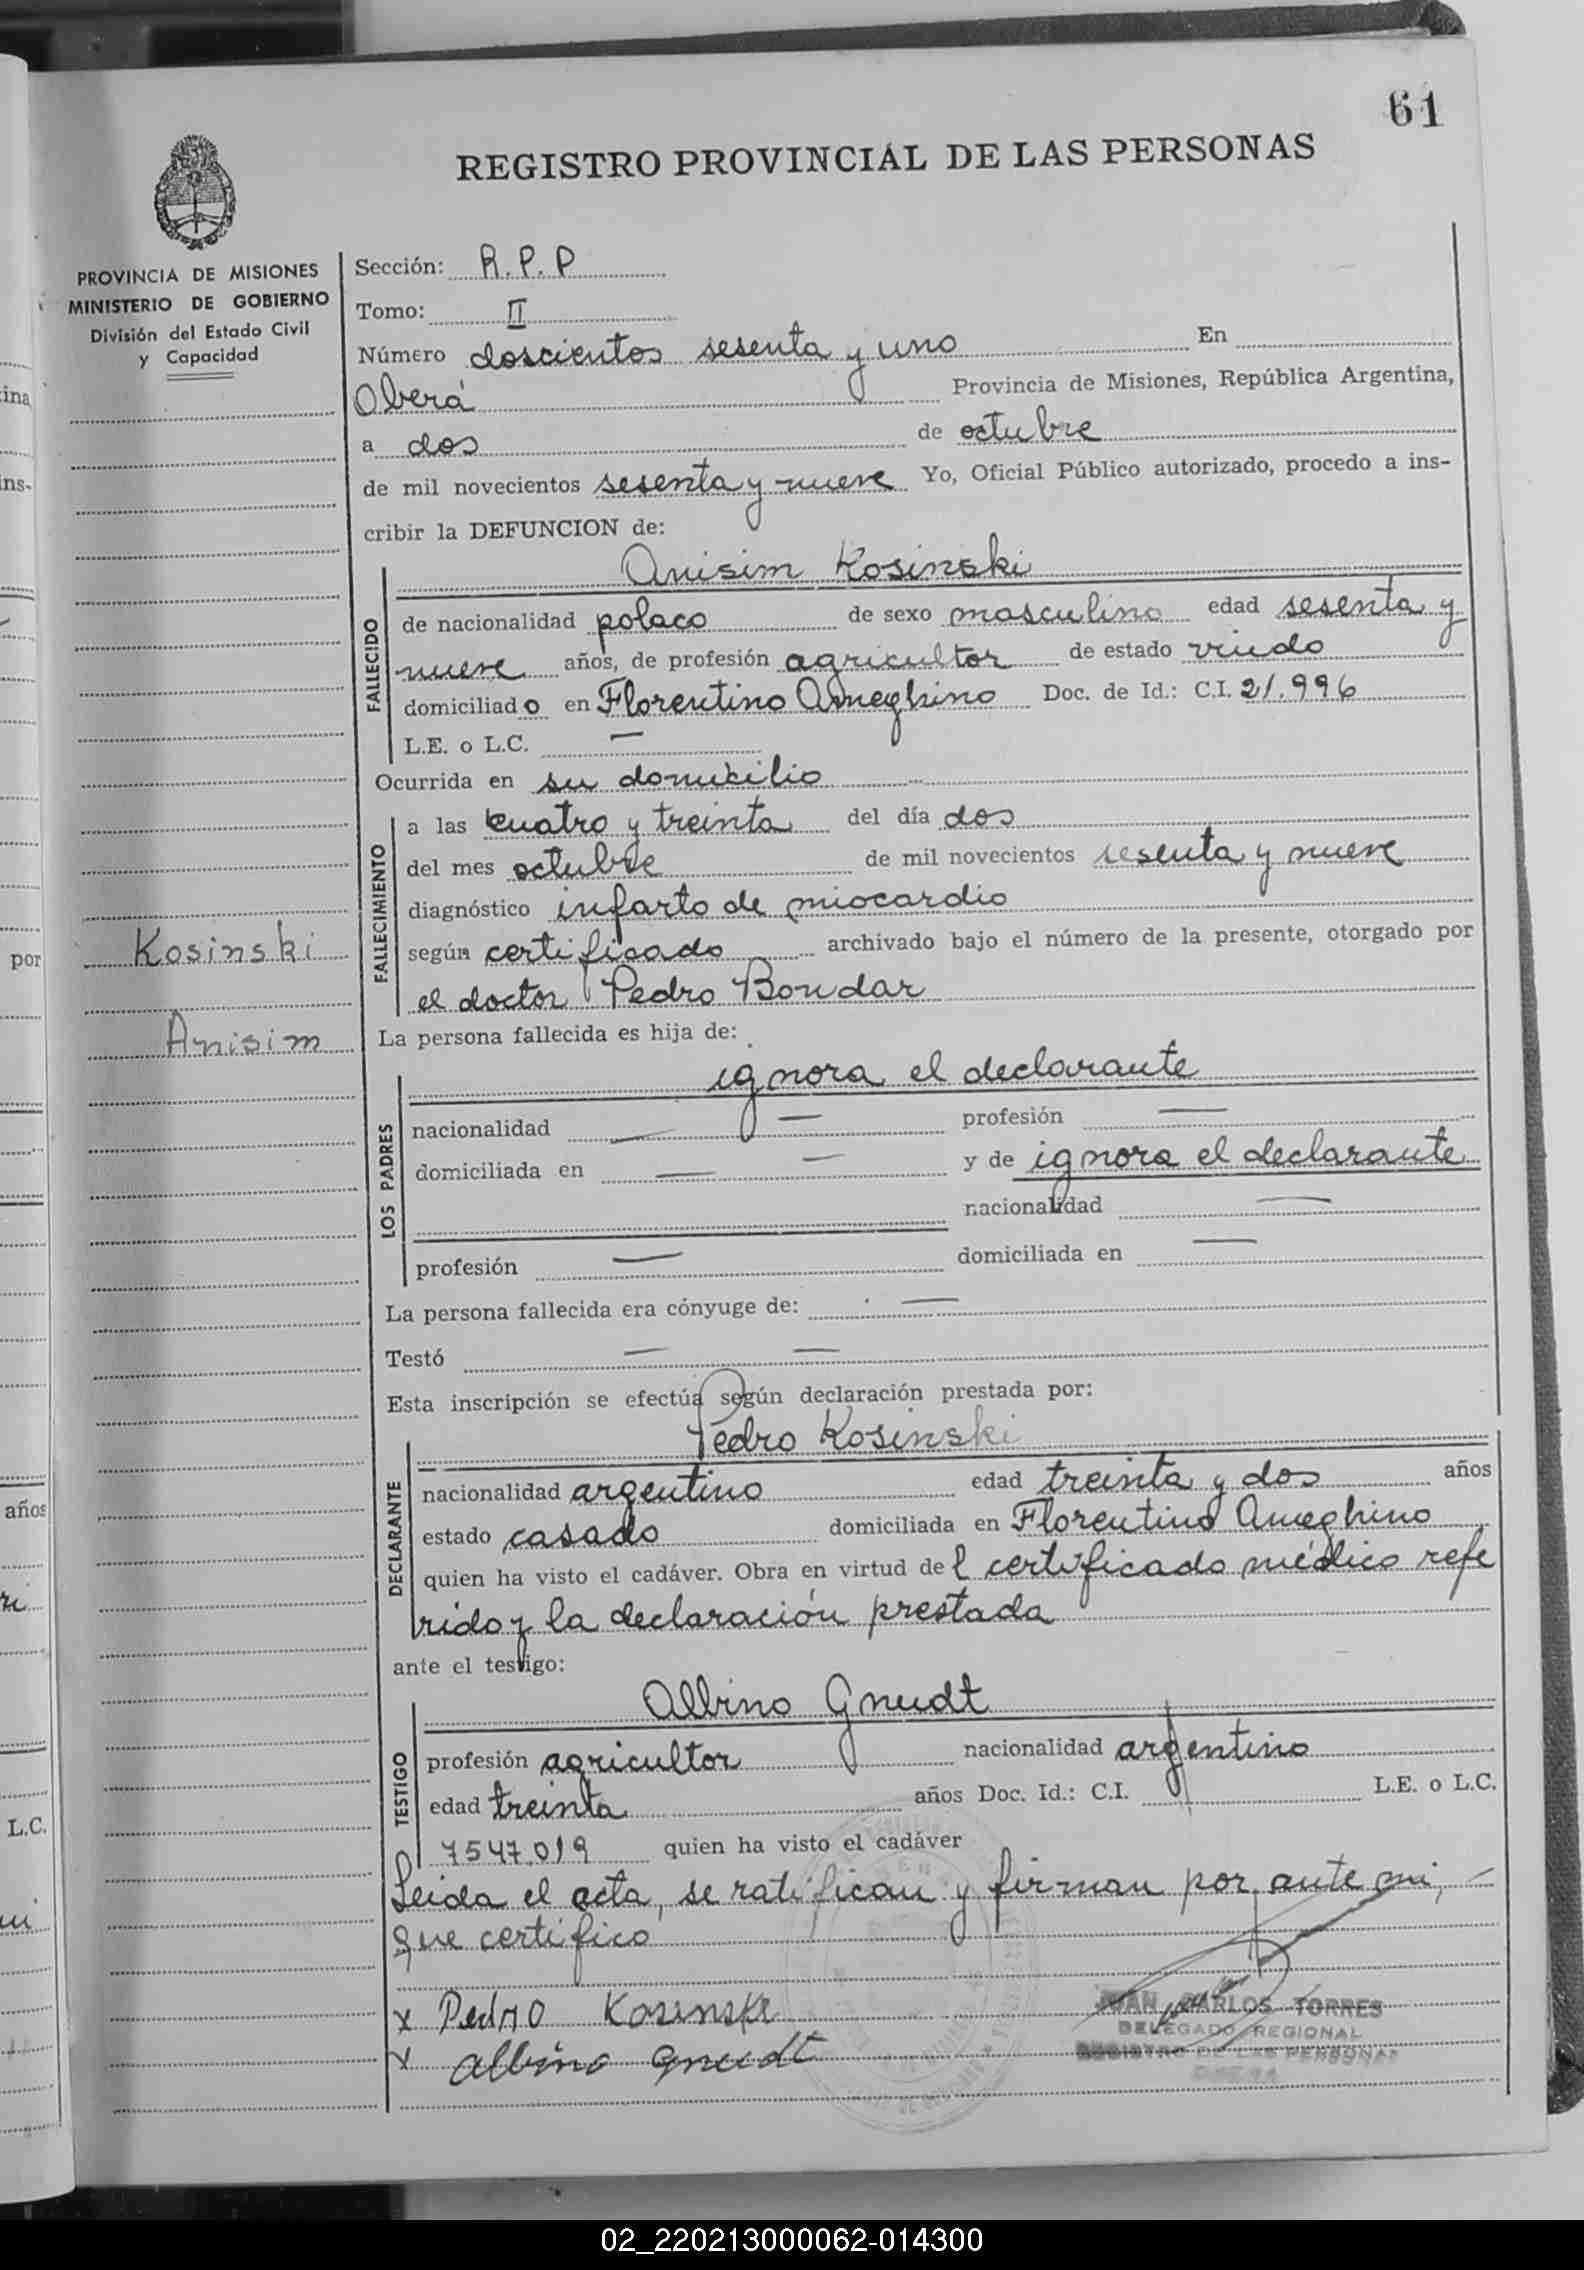 61
REGISTRO PROVINCIAL DE LAS PERSONAS
PROVINCIA DE MISIONES
MINISTERIO DE GOBIERNO
División del Estado Civil
y Capacidad
Sección: R.P.P
Tomo: II
Número doscientos sesenta y uno En
Oberá Provincia de Misiones, República Argentina,
a dos de octubre
de mil novecientos sesenta y nueve Yo, Oficial Público autorizado, procedo a ins-
cribir la DEFUNCION de:
Anisim Kosinski
FALLECIDO
de nacionalidad polaco de sexo masculino edad sesenta y
nueve años, de profesión agricultor de estado viudo
domiciliado en Florentino Ameghino Doc. de Id.: C.I. 21.996
L.E. o L.C. —
Ocurrida en su domicilio
FALLECIMIENTO
a las cuatro y treinta del día dos
del mes octubre de mil novecientos sesenta y nueve
diagnóstico infarto de miocardio
según certificado archivado bajo el número de la presente, otorgado por
el doctor Pedro Bondar
Kosinski
Anisim
La persona fallecida es hija de:
ignora el declarante
LOS PADRES
nacionalidad — — profesión —
domiciliada en — — y de ignora el declarante
nacionalidad —
profesión — domiciliada en —
La persona fallecida era cónyuge de: —
Testó — —
Esta inscripción se efectúa según declaración prestada por:
Pedro Kosinski
DECLARANTE
nacionalidad argentino edad treinta y dos años
estado casado domiciliada en Florentino Ameghino
quien ha visto el cadáver. Obra en virtud del certificado médico refe
rido y la declaración prestada
ante el testigo:
Albino Gnudt
TESTIGO
profesión agricultor nacionalidad argentino
edad treinta años Doc. Id.: C.I. L.E. o L.C.
7547.019 quien ha visto el cadáver
Leida el acta, se ratifican y firman por ante mi, —
que certifico
x Pedro Kosinski
x Albino Gnudt
JUAN CARLOS TORRES
DELEGADO REGIONAL
REGISTRO DE LAS PERSONAS
OBERA
ina
ins-
por
años
L.C.
02_220213000062-014300